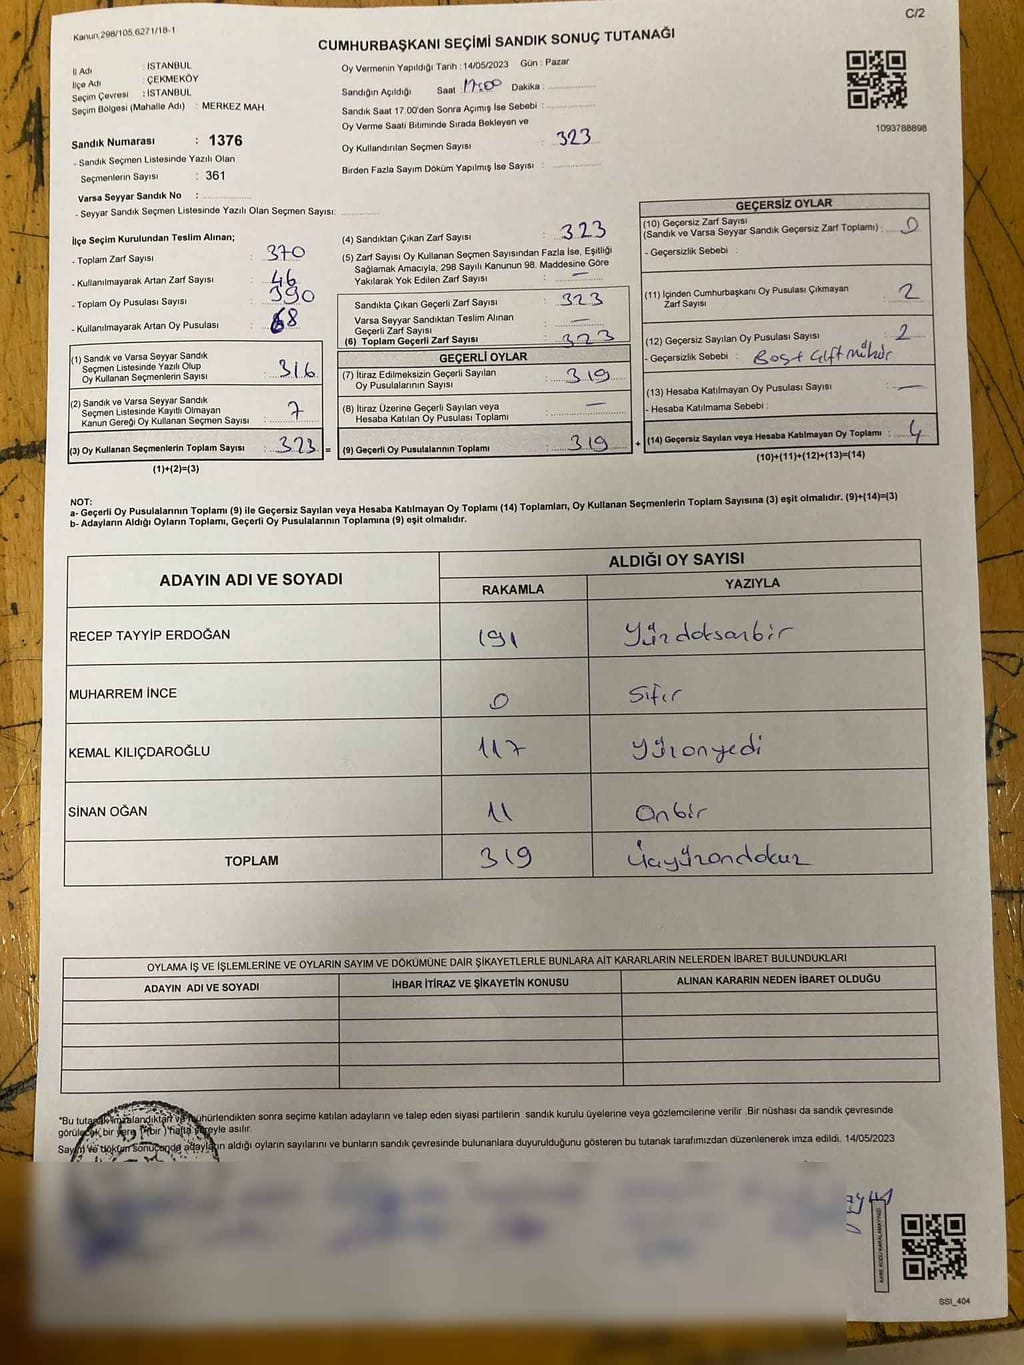 Kanun,298/105,6271/18-1
C/2
CUMHURBAŞKANI SEÇİMİ SANDIK SONUÇ TUTANAĞI
İl Adı : İSTANBUL
İlçe Adı : ÇEKMEKÖY
Seçim Çevresi : İSTANBUL
Seçim Bölgesi (Mahalle Adı) : MERKEZ MAH.
Sandık Numarası : 1376
- Sandık Seçmen Listesinde Yazılı Olan
Seçmenlerin Sayısı : 361
Varsa Seyyar Sandık No :
- Seyyar Sandık Seçmen Listesinde Yazılı Olan Seçmen Sayısı:
Oy Vermenin Yapıldığı Tarih : 14/05/2023 Gün : Pazar
Sandığın Açıldığı Saat 17:00 Dakika :
Sandık Saat 17.00'den Sonra Açımış İse Sebebi :
Oy Verme Saati Bitiminde Sırada Bekleyen ve
Oy Kullandırılan Seçmen Sayısı : 323
Birden Fazla Sayım Döküm Yapılmış İse Sayısı :
1093788898
İlçe Seçim Kurulundan Teslim Alınan;
- Toplam Zarf Sayısı : 370
- Kullanılmayarak Artan Zarf Sayısı : 46
- Toplam Oy Pusulası Sayısı : 390
- Kullanılmayarak Artan Oy Pusulası : 68
(1) Sandık ve Varsa Seyyar Sandık
Seçmen Listesinde Yazılı Olup
Oy Kullanan Seçmenlerin Sayısı : 316
(2) Sandık ve Varsa Seyyar Sandık
Seçmen Listesinde Kayıtlı Olmayan
Kanun Gereği Oy Kullanan Seçmen Sayısı : 7
(3) Oy Kullanan Seçmenlerin Toplam Sayısı : 323 =
(1)+(2)=(3)
(4) Sandıktan Çıkan Zarf Sayısı : 323
(5) Zarf Sayısı Oy Kullanan Seçmen Sayısından Fazla İse, Eşitliği
Sağlamak Amacıyla, 298 Sayılı Kanunun 98. Maddesine Göre
Yakılarak Yok Edilen Zarf Sayısı : —
Sandıkta Çıkan Geçerli Zarf Sayısı : 323
Varsa Seyyar Sandıktan Teslim Alınan
Geçerli Zarf Sayısı : —
(6) Toplam Geçerli Zarf Sayısı : 323
GEÇERLİ OYLAR
(7) İtiraz Edilmeksizin Geçerli Sayılan
Oy Pusulalarının Sayısı : 319
(8) İtiraz Üzerine Geçerli Sayılan veya
Hesaba Katılan Oy Pusulası Toplamı : —
(9) Geçerli Oy Pusulalarının Toplamı : 319 +
GEÇERSİZ OYLAR
(10) Geçersiz Zarf Sayısı
(Sandık ve Varsa Seyyar Sandık Geçersiz Zarf Toplamı) : 0
- Geçersizlik Sebebi :
(11) İçinden Cumhurbaşkanı Oy Pusulası Çıkmayan
Zarf Sayısı : 2
(12) Geçersiz Sayılan Oy Pusulası Sayısı : 2
- Geçersizlik Sebebi : Boş+Çift mühür
(13) Hesaba Katılmayan Oy Pusulası Sayısı : —
- Hesaba Katılmama Sebebi :
(14) Geçersiz Sayılan veya Hesaba Katılmayan Oy Toplamı : 4
(10)+(11)+(12)+(13)=(14)
NOT:
a- Geçerli Oy Pusulalarının Toplamı (9) ile Geçersiz Sayılan veya Hesaba Katılmayan Oy Toplamı (14) Toplamları, Oy Kullanan Seçmenlerin Toplam Sayısına (3) eşit olmalıdır. (9)+(14)=(3)
b- Adayların Aldığı Oyların Toplamı, Geçerli Oy Pusulalarının Toplamına (9) eşit olmalıdır.
ADAYIN ADI VE SOYADI
ALDIĞI OY SAYISI
RAKAMLA YAZIYLA
RECEP TAYYİP ERDOĞAN 191 Yüzdoksanbir
MUHARREM İNCE 0 Sıfır
KEMAL KILIÇDAROĞLU 117 Yüzonyedi
SİNAN OĞAN 11 Onbir
TOPLAM 319 Üçyüzondokuz
OYLAMA İŞ VE İŞLEMLERİNE VE OYLARIN SAYIM VE DÖKÜMÜNE DAİR ŞİKAYETLERLE BUNLARA AİT KARARLARIN NELERDEN İBARET BULUNDUKLARI
ADAYIN ADI VE SOYADI İHBAR İTİRAZ VE ŞİKAYETİN KONUSU ALINAN KARARIN NEDEN İBARET OLDUĞU
*Bu tutanak imzalandıktan ve mühürlendikten sonra seçime katılan adayların ve talep eden siyasi partilerin sandık kurulu üyelerine veya gözlemcilerine verilir .Bir nüshası da sandık çevresinde
görülecek bir yere 1(bir ) hafta süreyle asılır.
Sayım ve döküm sonucunda adayların aldığı oyların sayılarını ve bunların sandık çevresinde bulunanlara duyurulduğunu gösteren bu tutanak tarafımızdan düzenlenerek imza edildi. 14/05/2023
KARE KODU KARALAMAYINIZ!
SSI_404